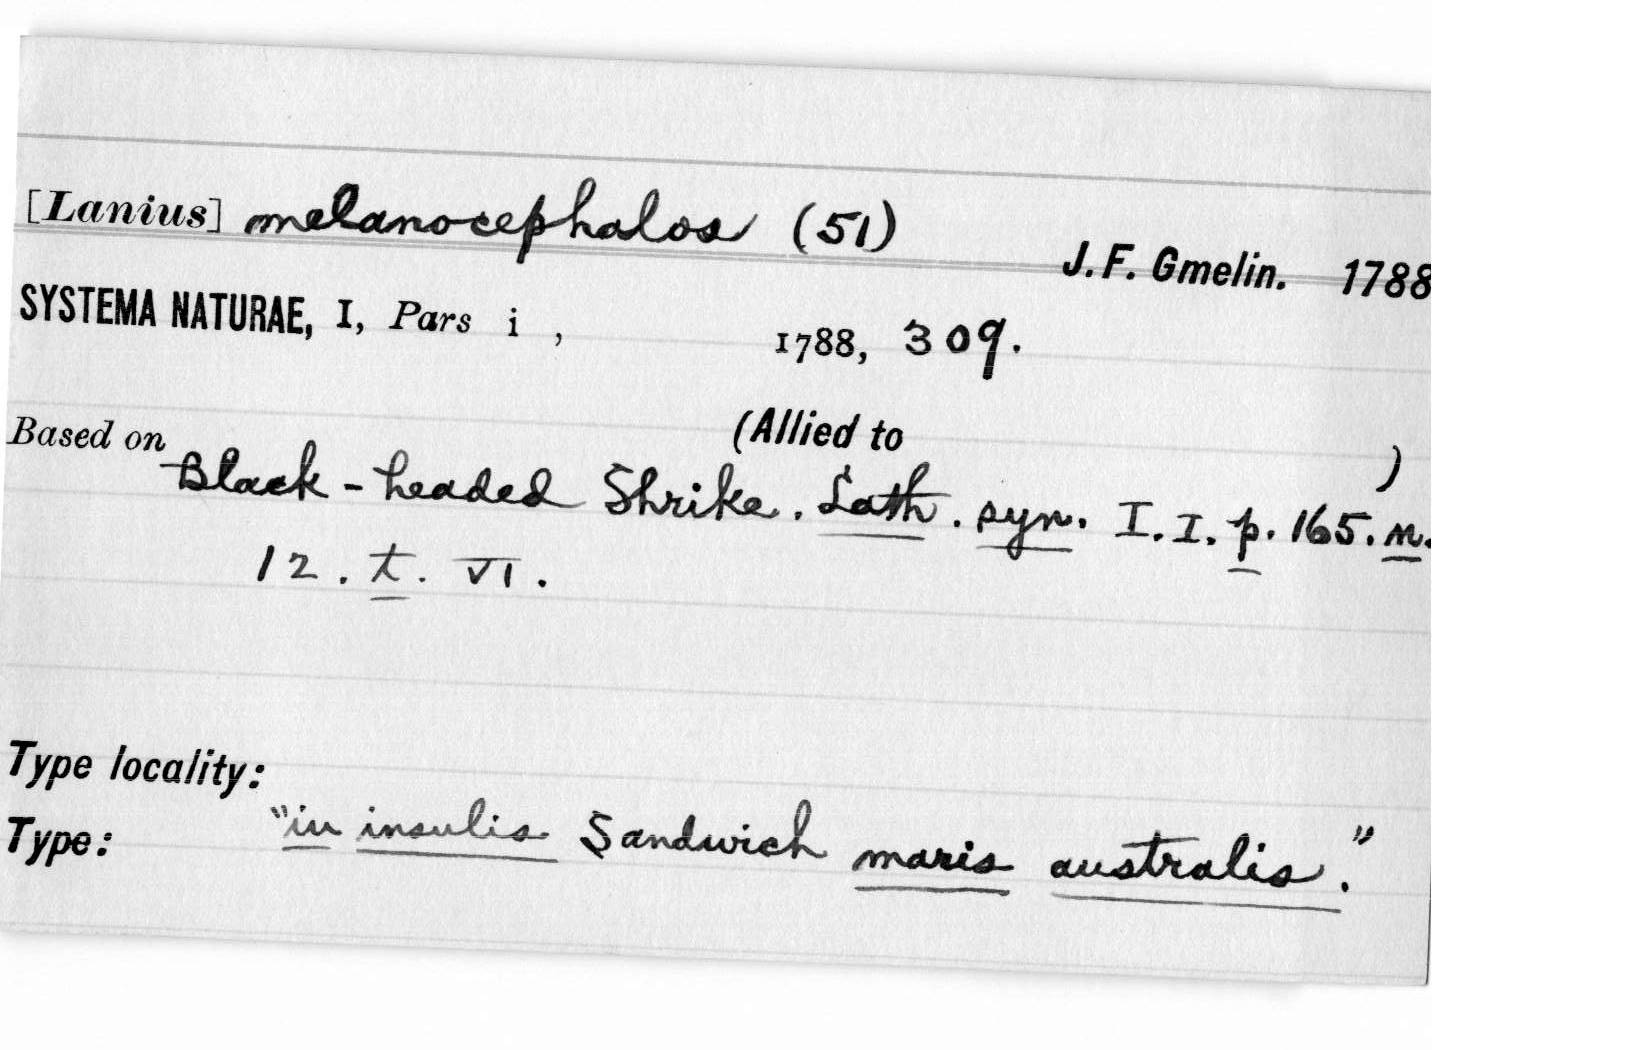 [Lanius] melanocephalos (51)
J. F. Gmelin. 1788
SYSTEMA NATURAE, I, Pars i , 1788, 309.
(Allied to )
Based on Black-headed Shrike. Lath. syn. I. I. p. 165. n.
12. t. VI.
Type locality:
Type: "in insulis Sandwich maris australis."